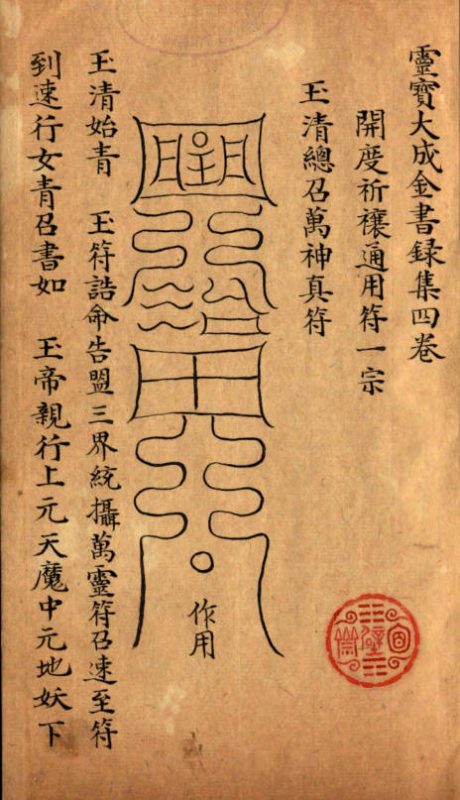 靈寶大成金書録集四卷
開度祈禳通用符一宗
玉清總召萬神真符
作用
玉清始青 玉符誥命告盟三界統攝萬靈符召速至符
到速行女青召書如 玉帝親行上元天魔中元地妖下